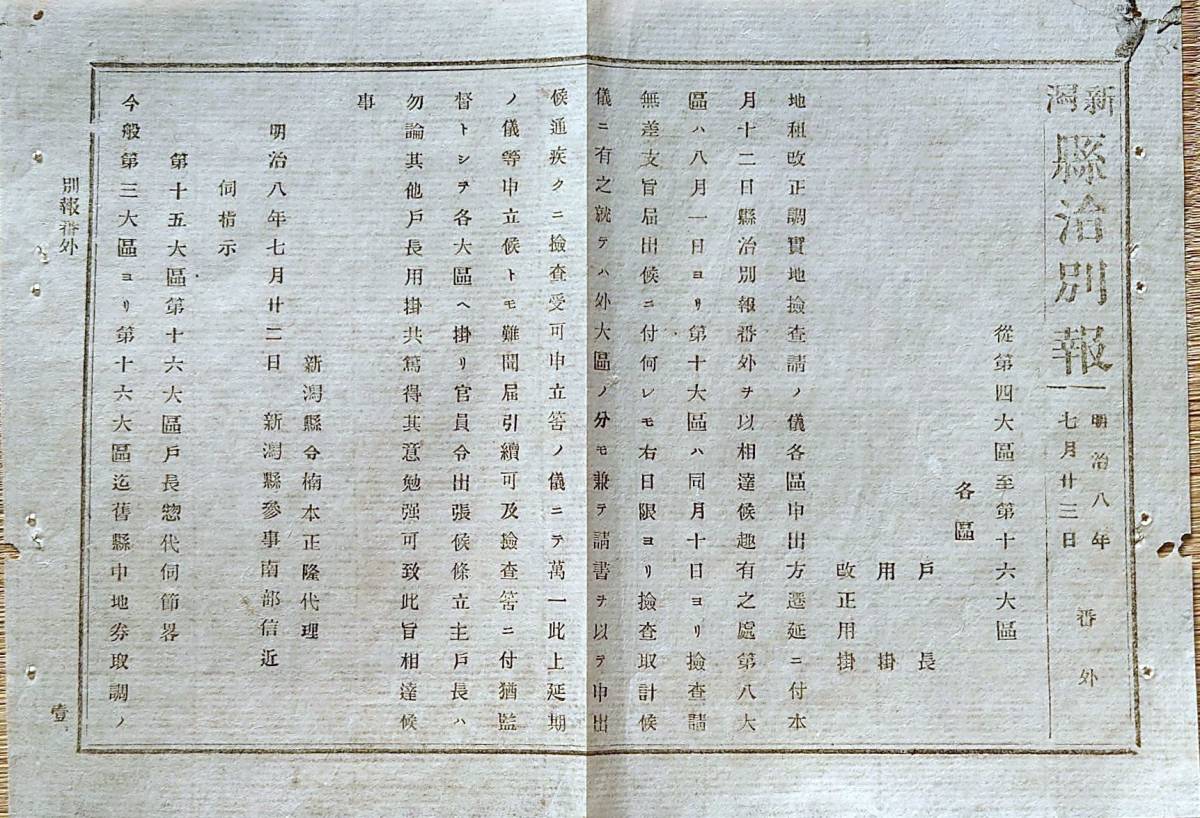 新潟縣治別報
明治八年
七月廿三日
番外
從第四大區至第十六大區
各區
戸長
用掛
改正用掛
地租改正調實地撿査請ノ儀各區申出方遷延ニ付本
月十二日縣治別報番外ヲ以相達候趣有之處第八大
區ハ八月一日ヨリ第十大區ハ同月十日ヨリ撿査請
無差支旨届出候ニ付何レモ右日限ヨリ撿査取計候
儀ニ有之就テハ外大區ノ分モ兼テ請書ヲ以テ申出
候通疾クニ撿査受可申立筈ノ儀ニテ萬一此上延期
ノ儀等申立候トモ難聞届引續可及撿查筈ニ付猶監
督トシテ各大區ヘ掛リ官員令出張候條立主戸長ハ
勿論其他戸長用掛共篤得其意勉强可致此旨相達候
事
新潟縣令楠本正隆代理
明治八年七月廿二日 新潟縣參事南部信近
伺指示
第十五大區第十六大區戸長惣代伺節畧
今般第三大區ヨリ第十六大區迄舊縣中地券取調ノ
別報番外
壹